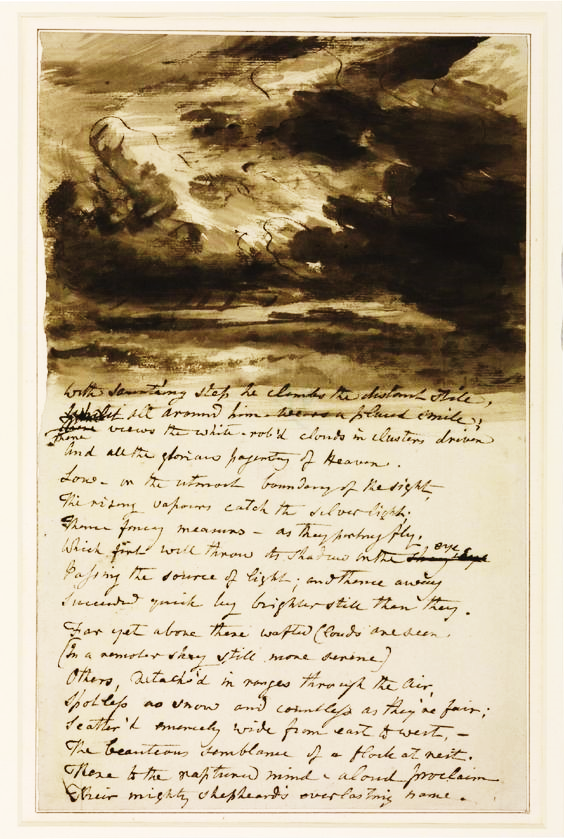 With saunt'ring step he climbs the distant stile,
Whilst all around him wears a placid smile;
There views the white-rob'd clouds in clusters driven
And all the glorious pagentry of Heaven.
Low - on the utmost boundary of the sight,
The rising vapours catch the silver light;
Thence fancy measures - as they parting fly,
Which first will throw its shadow on the eye,
Passing the source of light; and thence away
Succeeded quick by brighter still than they.
Far yet above these wafted Clouds are seen.
(In a remoter sky still more serene)
Others, Detach'd in ranges through the Air,
Spotless as snow and countless as they're fair;
Scatter'd immensely wide from east to west, -
The beauteous semblance of a flock at rest.
These to the raptured mind - aloud proclaim
Their mighty shepheards everlasting name.